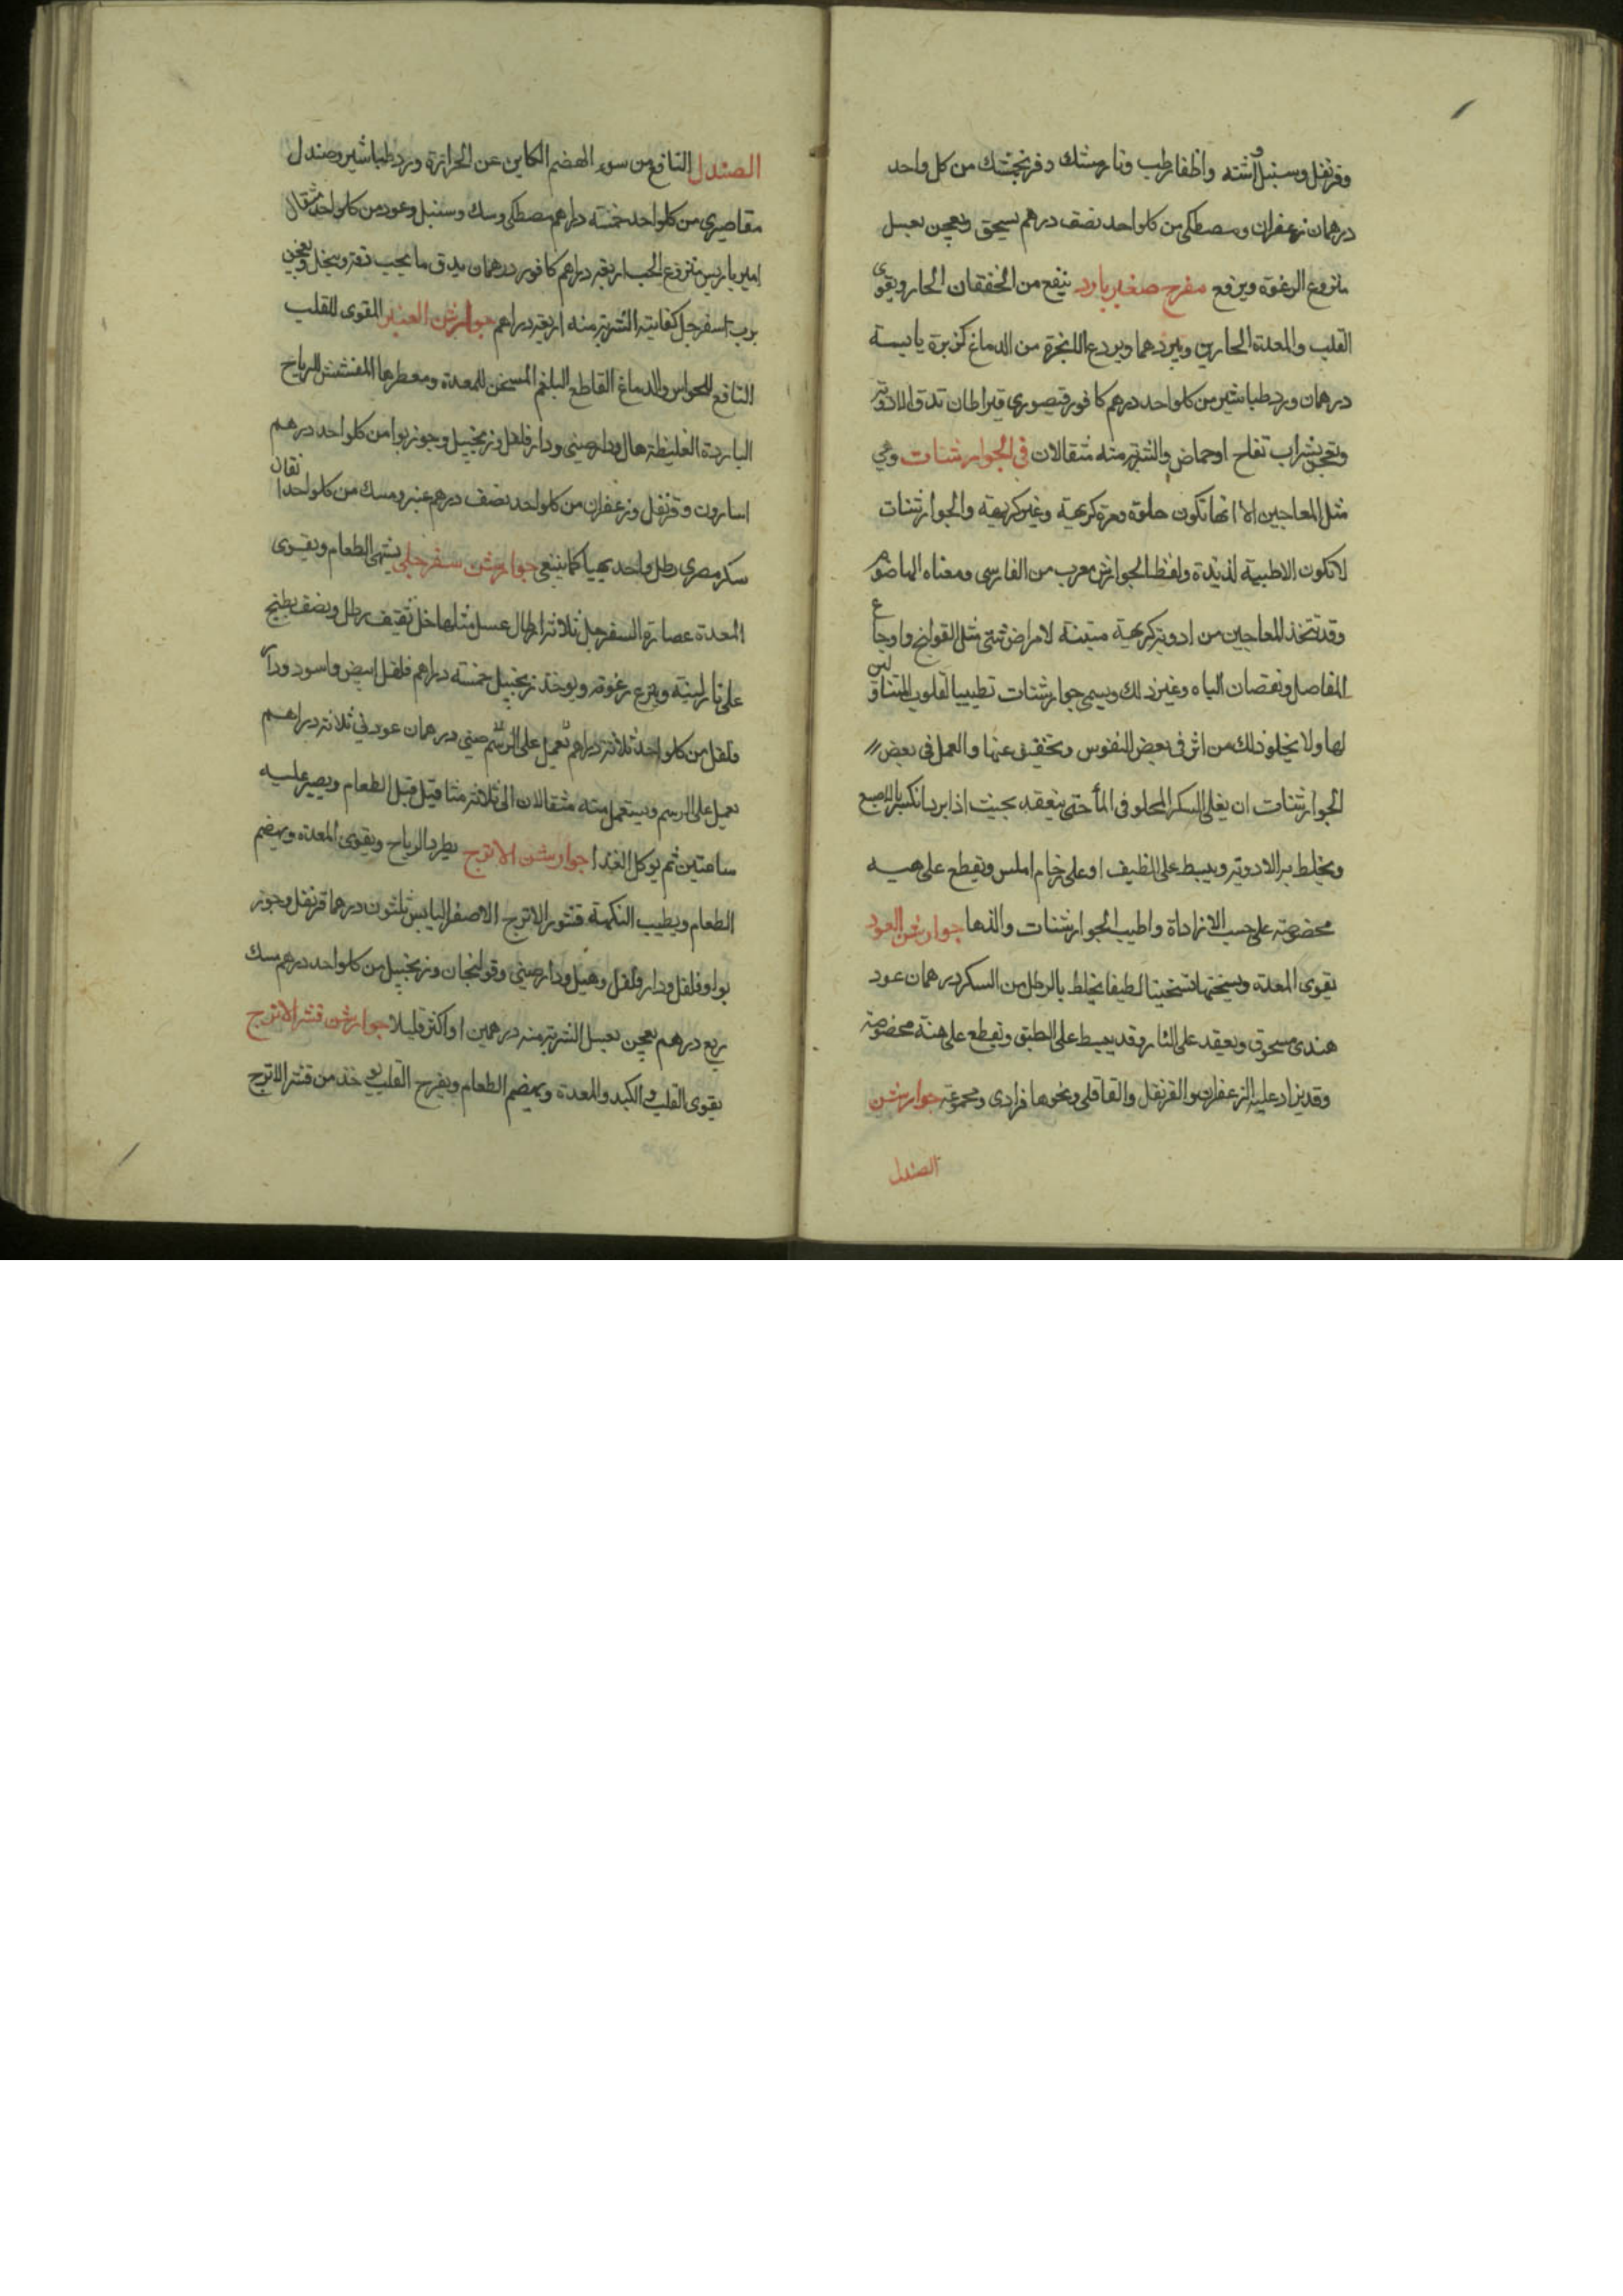 وقرنفل وسنبل واشنه واظفار طيب ونارمشك وفرنجمشك من كل واحد
درهمان زعفران ومصطكى من كلواحد نصف درهم يسحق ويعجن بعسل
منزوع الرغوة ويرفع مفرح صغير بارد ينفع من الخفقان الحار ويقوى
القلب والمعدة الحارين ويبردهما ويردع الابخرة من الدماغ كزبرة يابسة
درهمان ورد طباشير من كلواحد درهم كافور قيصورى قيراطان تدق الادوية
وتعجن بشراب تفاح او حماض والشربة منه مثقالان فى الجوارشنات وهي
مثل المعاجين الا انها تكون حلوة ومرة كريهة وغير كريهة والجوارشنات
لا تكون الا طيبة لذيذة ولفظ الجوارش معرب من الفارسى ومعناه الهاضوم
وقد تتخذ المعاجين من ادوية كريهة لامراض شتى مثل القولنج واوجاع
المفاصل ونقصان الباه وغير ذلك ويسمى جوارشنات تطييبا لقلوب المتناولين
لها ولا يخلو ذلك من اثر فى بعض النفوس وتخفيف عنها والعمل فى بعض
الجوارشنات ان يغلى السكر المحلو فى الماء حتى ينعقد بحيث اذا برد انكسر بالاصبع
ويخلط به الادوية ويبسط على نظيف او على رخام املس ويقطع على هيه
مخصوصة على حسب الارادة واطيب الجوارشنات والذها جوارشن العود
يقوى المعدة ويسخنها تسخينا لطيفا يخلط بالرطل من السكر درهمان عود
هندى مسحوق ويعقد على النار وقد يبسط على الطبق وتقطع على هيئة مخصوصة
وقد يزاد عليه الزعفران والقرنفل والقاقلى ونحوها فرادى ومجموعة جوارشن
الصندل
الصندل النافع من سوء الهضم الكاين عن الحرارة ورد طباشير وصندل
مقاصيرى من كلواحد خمسة دراهم مصطكى وسك وسنبل وعود من كلواحد مثقال
امير باريس منزوع الحب اربعة دراهم كافور درهمان يدق ما يجب دقه وينخل ويعجن
برب اسفرجل كفايته الشربة منه اربعة دراهم جوارشن العنبر المقوى للقلب
النافع للحواس والدماغ القاطع البلغم المسخن للمعدة ومعطرها المفشش الرياح
الباردة الغليظة هال ودارصينى ودارفلفل وزنجبيل وجوزبوا من كلواحد درهم
اسارون وقرنفل وزعفران من كلواحد نصف درهم عنبر ومسك من كلواحد دانقان
سكر مصرى رطل واحد يهيا كما ينبغى جوارشن سفرجلى يشهى الطعام ويقوى
المعدة عصارة السفرجل ثلاثة ارطال عسل مثلها خل ثقيف رطل ونصف يطبخ
على نار لينة وينزع رغوته ويوخذ زنجبيل خمسة دراهم فلفل ابيض واسود ودار
فلفل من كلواحد ثلاثة دراهم يعمل على الرسم صينى درهمان عود ثلاثة دراهم
يعمل على الرسم ويستعمل منه مثقالان الى ثلاثة مثاقيل قبل الطعام ويصبر عليه
ساعتين ثم يوكل الغذا جوارشن الاترج يطرد الرياح ويقوى المعدة ويهضم
الطعام ويطيب النكهة قشور الاترج الاصفر اليابس ثلثون درهما قرنفل وجوز
بوا وفلفل ودارفلفل وهيل ودارصينى وقولنجان وزنجبيل من كلواحد درهم مسك
ربع درهم يعجن بعسل الشربة منه درهمين او اكثر قليلا جوارشن قشر الاترج
يقوى القلب والكبد والمعدة ويهضم الطعام ويفرح القلب يوخذ من قشر الاترج